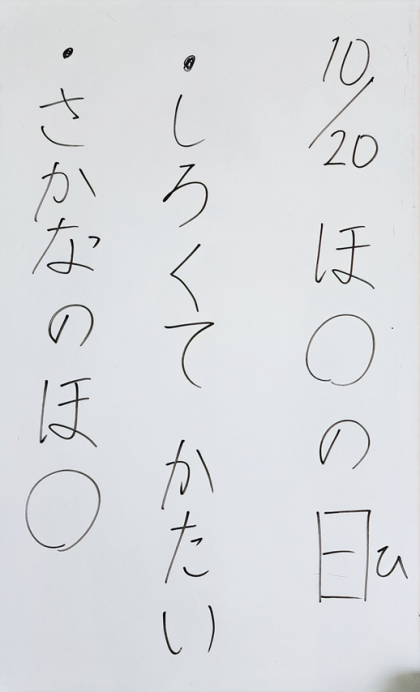 10/20 ほ〇の日ひ
・しろくて かたい
・さかなのほ〇